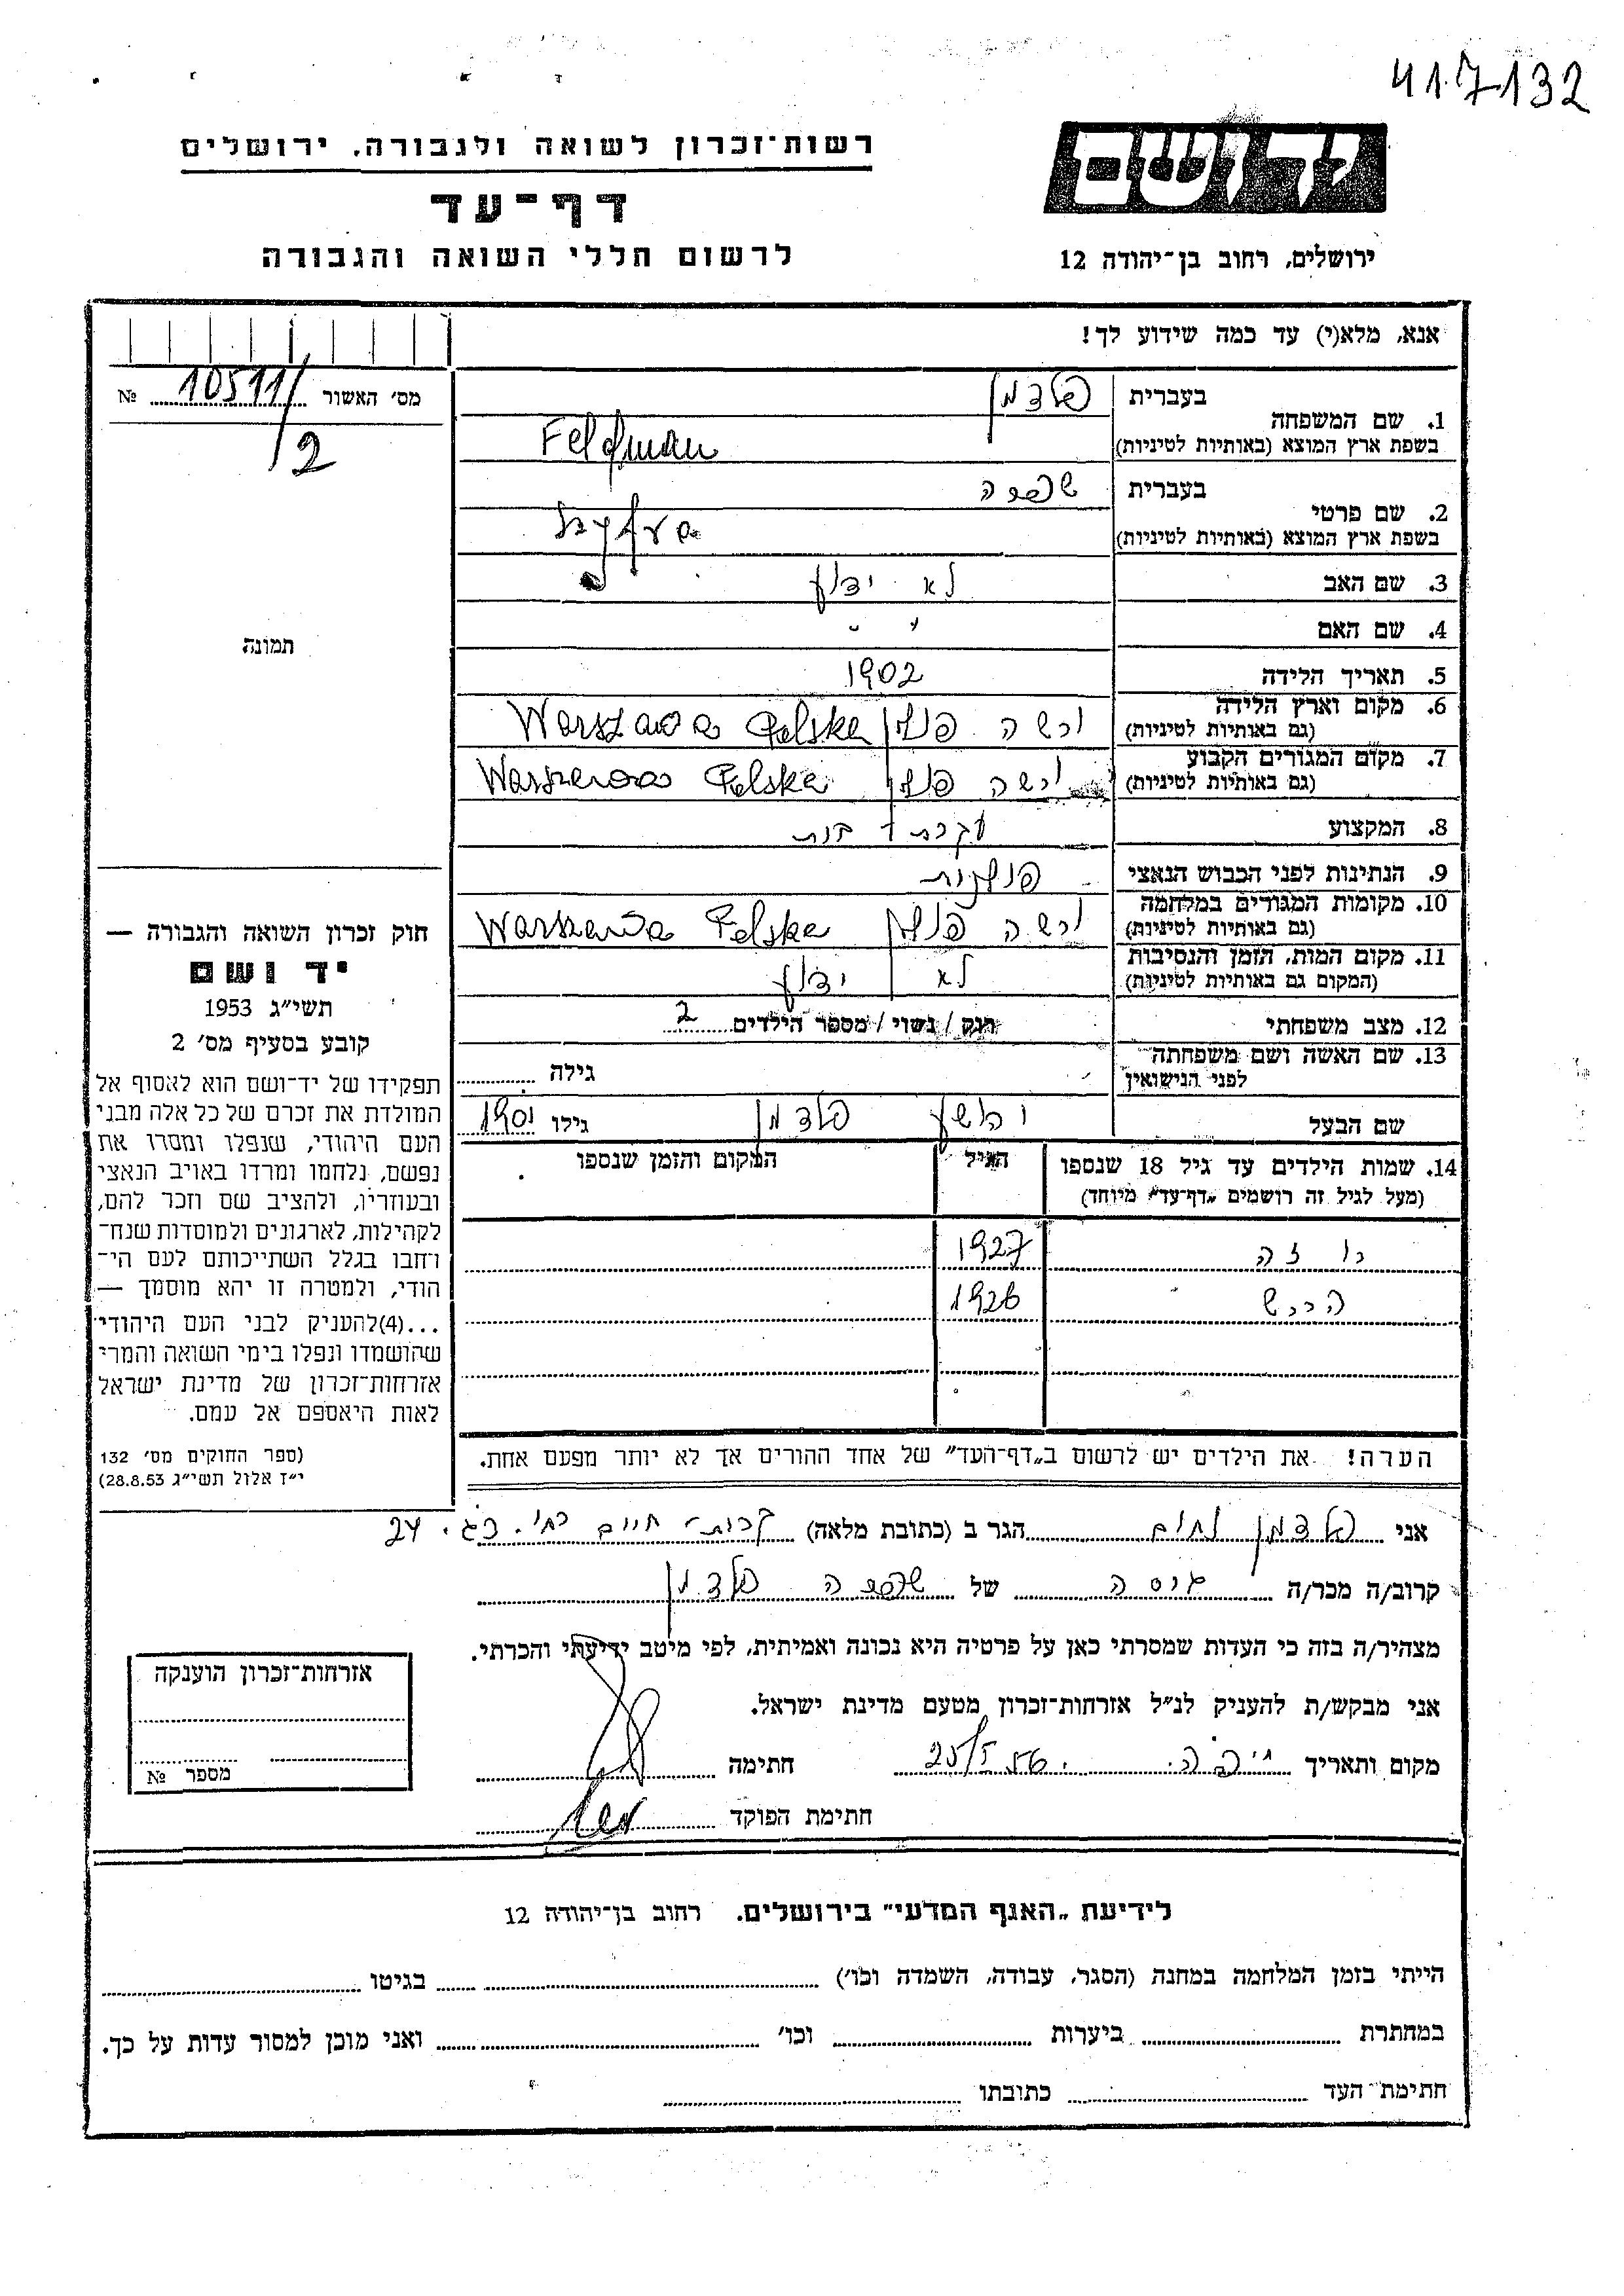 417132
רשות־זכרון לשואה ולגבורה, ירושלים
דף־עד
לרשום חללי השואה והגבורה
יד ושם
ירושלים, רחוב בן־יהודה 12
אנא, מלא(י) עד כמה שידוע לך!
מס׳ האשור 10511/2 №
תמונה
1. שם המשפחה
בעברית פלדמן
בשפת ארץ המוצא (באותיות לטיניות) Feldman
2. שם פרטי
בעברית שפרה
בשפת ארץ המוצא (באותיות לטיניות) Szyfra
3. שם האב לא ידוע
4. שם האם " "
5. תאריך הלידה 1902
6. מקום וארץ הלידה ורשה פולין Warszawa Polska
(גם באותיות לטיניות)
7. מקום המגורים הקבוע ורשה פולין Warszawa Polska
(גם באותיות לטיניות)
8. המקצוע עקרת בית
9. הנתינות לפני הכבוש הנאצי פולנית
10. מקומות המגורים במלחמה ורשה פולין Warszawa Polska
(גם באותיות לטיניות)
11. מקום המות, הזמן והנסיבות לא ידוע
(המקום גם באותיות לטיניות)
12. מצב משפחתי רוק / נשוי / מספר הילדים 2
13. שם האשה ושם משפחתה
לפני הנישואין
גילה
שם הבעל יהושע פלדמן גילו 1901
14. שמות הילדים עד גיל 18 שנספו
(מעל לגיל זה רושמים „דף־עד״ מיוחד)
הגיל
המקום והזמן שנספו
רוזה 1927
הרש 1926
הערה! את הילדים יש לרשום ב„דף־העד״ של אחד ההורים אך לא יותר מפעם אחת.
חוק זכרון השואה והגבורה —
יד ושם
תשי״ג 1953
קובע בסעיף מס׳ 2
תפקידו של יד־ושם הוא לאסוף אל
המולדת את זכרם של כל אלה מבני
העם היהודי, שנפלו ומסרו את
נפשם, נלחמו ומרדו באויב הנאצי
ובעוזריו, ולהציב שם וזכר להם,
לקהילות, לארגונים ולמוסדות שנח־
רחבו בגלל השתייכותם לעם הי־
הודי, ולמטרה זו יהא מוסמך —
...(4)להעניק לבני העם היהודי
שהושמדו ונפלו בימי השואה והמרי
אזרחות־זכרון של מדינת ישראל
לאות היאספם אל עמם.
(ספר החוקים מס׳ 132
י״ז אלול תשי״ג 28.8.53)
אני פלדמן נחום הגר ב (כתובת מלאה) קרית־חיים 24
קרוב/ה מכר/ה גיסה של שפרה פלדמן
מצהיר/ה בזה כי העדות שמסרתי כאן על פרטיה היא נכונה ואמיתית, לפי מיטב ידיעתי והכרתי.
אני מבקש/ת להעניק לנ״ל אזרחות־זכרון מטעם מדינת ישראל.
מקום ותאריך חיפה. 25/I 56. חתימה
חתימת הפוקד
אזרחות־זכרון הוענקה
מספר №
לידיעת „האגף המדעי״ בירושלים. רחוב בן־יהודה 12
הייתי בזמן המלחמה במחנה (הסגר, עבודה, השמדה וכו׳) בגיטו
במחתרת ביערות וכו׳ ואני מוכן למסור עדות על כך.
חתימת העד כתובתו